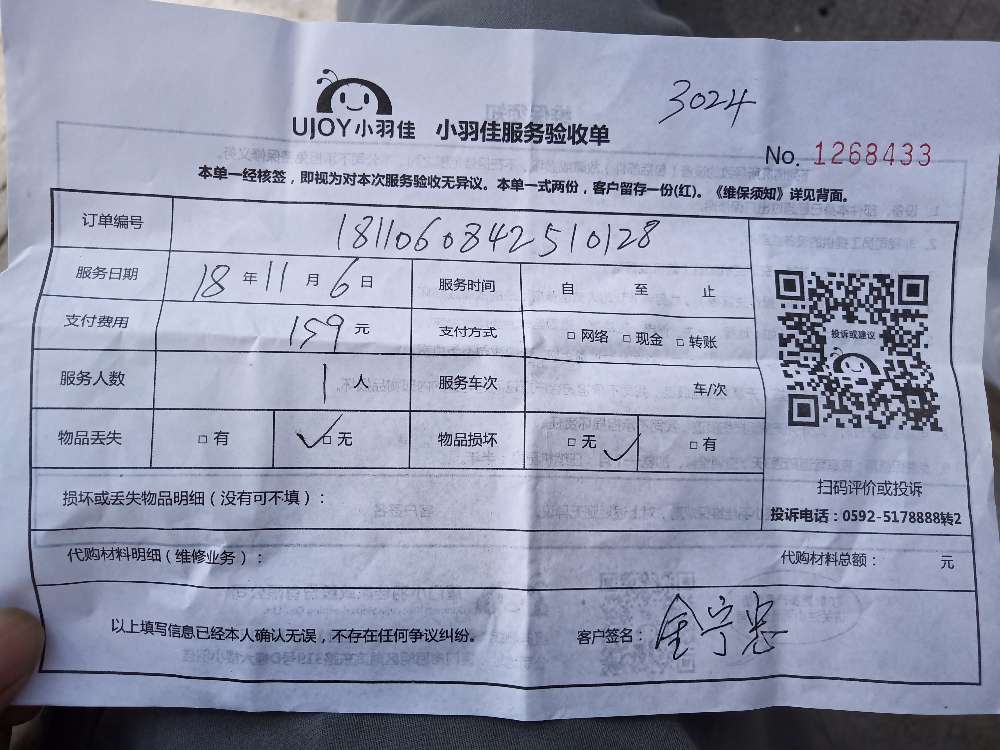 3024
UJOY小羽佳 小羽佳服务验收单
No. 1268433
本单一经核签，即视为对本次服务验收无异议。本单一式两份，客户留存一份(红)。《维保须知》详见背面。
订单编号 1811060842510128
服务日期 18 年 11 月 6 日 服务时间 自 至 止
支付费用 159 元 支付方式 □ 网络 □ 现金 □ 转账
投诉或建议
服务人数 1 人 服务车次 车/次
物品丢失 □ 有 ✓□ 无 物品损坏 □ 无 ✓ □ 有
扫码评价或投诉
损坏或丢失物品明细（没有可不填）：
投诉电话：0592-5178888转2
代购材料明细（维修业务）： 代购材料总额： 元
以上填写信息已经本人确认无误，不存在任何争议纠纷。 客户签名： 金宁忠